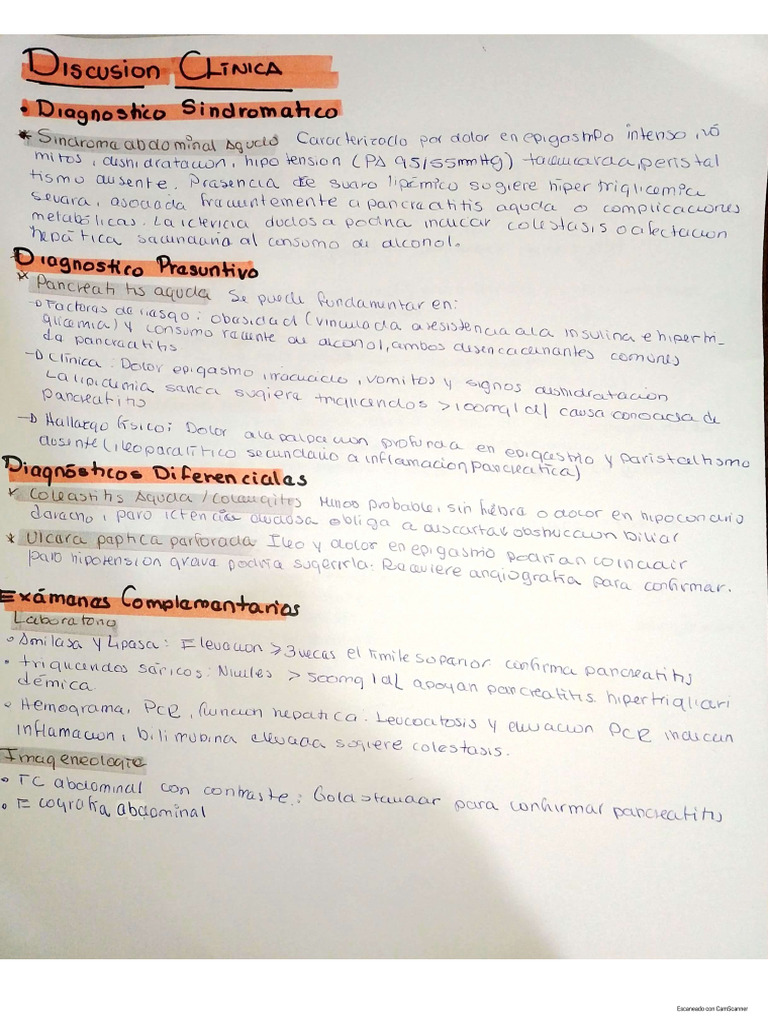 DISCUSION CLÍNICA
• Diagnostico Sindromatico
* Sindroma abdominal agudo Caracterizado por dolor en epigastrio intenso, vó
mitos, deshidratacion, hipotension (PA 95/55mmHg) taquicardia, peristal
tismo ausente. Presencia de suero lipémico sugiere hiper triglicemia
severa, asociada frecuentemente a pancreatitis aguda o complicaciones
metabólicas. La ictericia dudosa podria indicar colestasis o afectacion
hepática secundaria al consumo de alcohol.
Diagnostico Presuntivo
* Pancreatitis aguda Se puede fundamentar en:
→ Factores de riesgo: obesidad (vinculada a resistencia a la insulina e hipertri-
glicemia) y consumo reciente de alcohol, ambos desencadenantes comunes
de pancreatitis
→ Clínica: Dolor epigasmo, irradiado, vomitos y signos deshidratacion
La lipidemia sanca sugiera trigliceridos >100mg/dl causa conocida de
pancreatitis
→ Hallazgo físico; Dolor a la palpacion profunda en epigastrio y paristaltismo
ausente (ileo paralítico secundario a inflamacion pancreatica)
Diagnósticos Diferenciales
* Coleastitis Aguda / Colangitis Menos probable, sin fiebre o dolor en hipocondrio
derecho, pero ictericia dudosa obliga a descartar obstruccion biliar
* Ulcera peptica perforada Ileo y dolor en epigasmo podrían coincidir
pero hipotension grave podria sugerirla. Requiere angiografia para confirmar.
Exámenes Complementarios
Laboratorio
• Amilasa y Lipasa: Elevacion >3 veces el limite superior confirma pancreatitis
• trigliceridos séricos: Niveles > 500mg/dL apoyan pancreatitis hipertrigliceri
démica.
• Hemograma, PCR, funcion hepatica. Leucocitosis y elevacion PCR indican
inflamacion, bilirrubina elevada sugiere colestasis.
Imageneologia
• TC abdominal con contraste: Gold standar para confirmar pancreatitis
• Ecografia abdominal
Escaneado con CamScanner